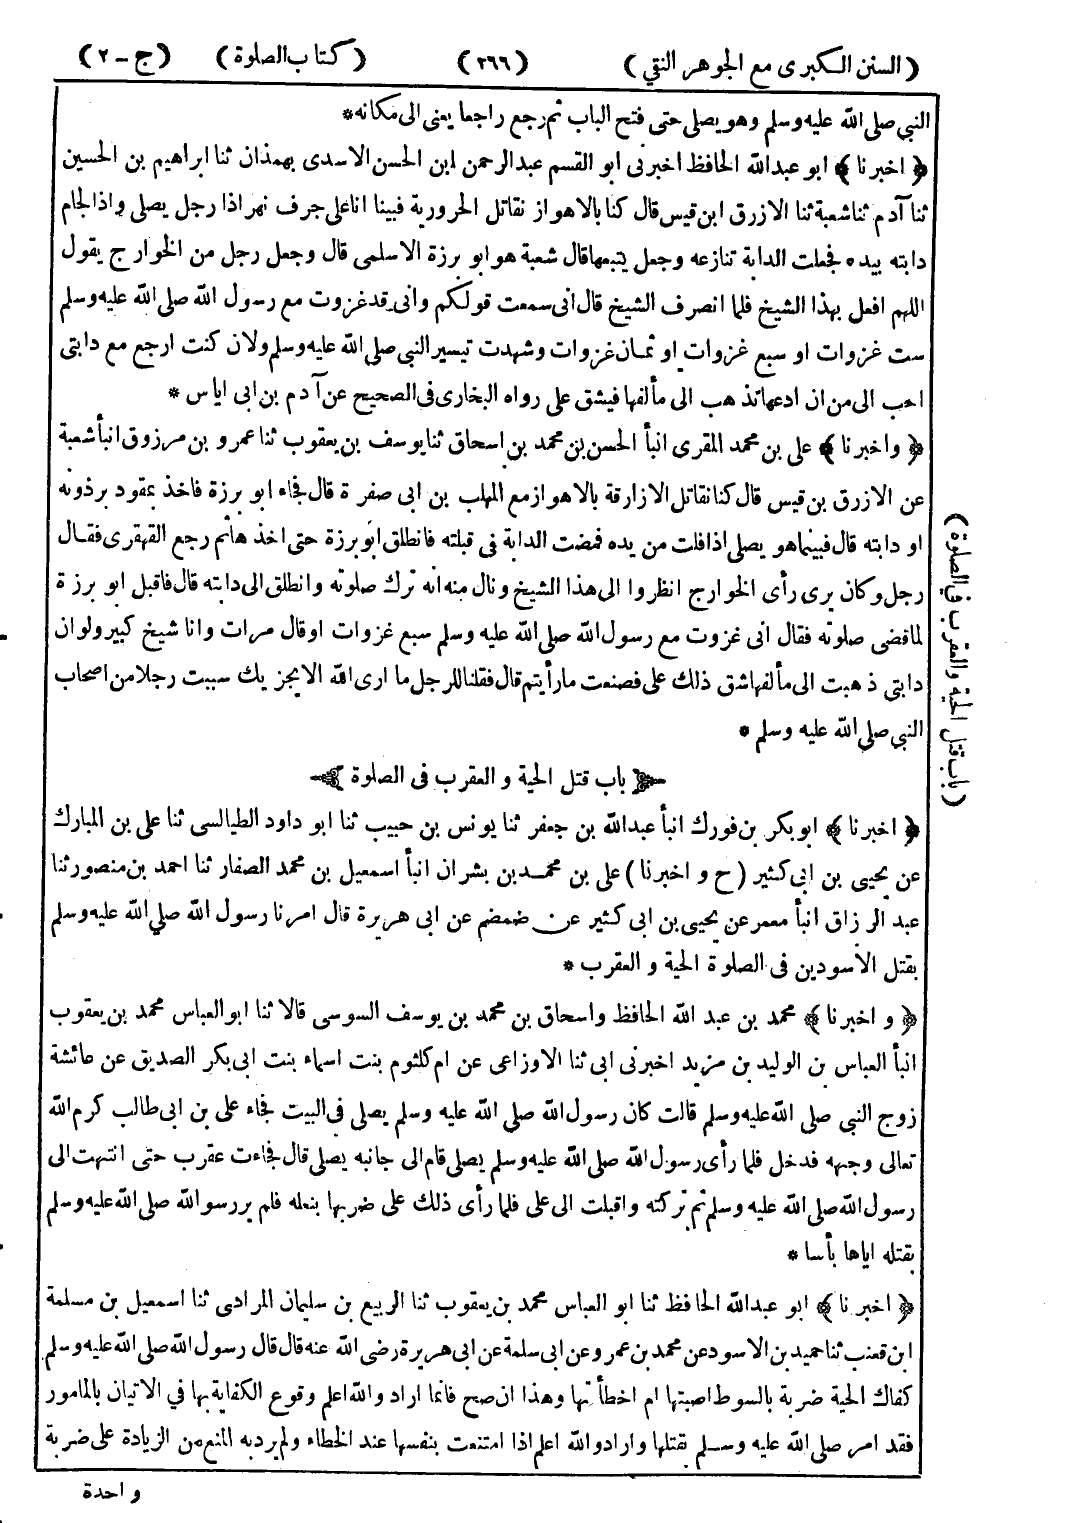 (السنن الكبرى مع الجوهر النقي) (٢٦٦) (كتاب الصلوة) (ج - ٢)
النبي صلى الله عليه وسلم وهو يصلى حتى فتح الباب ثم رجع راجعا يعنى الى مكانه *
﴿ اخبرنا ﴾ ابو عبدالله الحافظ اخبرنى ابو القسم عبدالرحمن ابن الحسن الاسدى بهمذان ثنا ابراهيم بن الحسين
ثنا آدم ثنا شعبة ثنا الازرق ابن قيس قال كنا بالاهواز نقاتل الحرورية فبينا انا على جرف نهر اذا رجل يصلى واذا لجام
دابته بيده فجعلت الدابة تنازعه وجعل يتبعها قال شعبة هو ابو برزة الاسلمى قال وجعل رجل من الخوارج يقول
اللهم افعل بهذا الشيخ فلما انصرف الشيخ قال انى سمعت قولكم وانى قد غزوت مع رسول الله صلى الله عليه وسلم
ست غزوات او سبع غزوات او ثمان غزوات وشهدت تيسير النبي صلى الله عليه وسلم ولان كنت ارجع مع دابتى
احب الى من ان ادعها تذهب الى مألفها فيشق على رواه البخارى فى الصحيح عن آدم بن ابى اياس *
﴿ واخبرنا ﴾ على بن محمد المقرى انبأ الحسن بن محمد بن اسحاق ثنا يوسف بن يعقوب ثنا عمرو بن مرزوق انبأ شعبة
عن الازرق بن قيس قال كنا نقاتل الازارقة بالاهواز مع المهلب بن ابى صفرة قال فجاء ابو برزة فاخذ بمقود برذونه
او دابته قال فبينما هو يصلى اذ افلت من يده فمضت الدابة فى قبلته فانطلق ابو برزة حتى اخذها ثم رجع القهقرى فقال
رجل وكان يرى رأى الخوارج انظروا الى هذا الشيخ ونال منه انه ترك صلوته وانطلق الى دابته قال فاقبل ابو برزة
لما قضى صلوته فقال انى غزوت مع رسول الله صلى الله عليه وسلم سبع غزوات او قال مرات وانا شيخ كبير ولو ان
دابتى ذهبت الى مألفها شق ذلك على فصنعت ما رأيتم قال فقلنا للرجل ما ارى الله الا يجزيك سببت رجلا من اصحاب
النبي صلى الله عليه وسلم *
باب قتل الحية و العقرب فى الصلوة
﴿ اخبرنا ﴾ ابو بكر بن فورك انبأ عبدالله بن جعفر ثنا يونس بن حبيب ثنا ابو داود الطيالسى ثنا على بن المبارك
عن يحيى بن ابى كثير (ح و اخبرنا) على بن محمد بن بشران انبأ اسمعيل بن محمد الصفار ثنا احمد بن منصور ثنا
عبد الرزاق انبأ معمر عن يحيى بن ابى كثير عن ضمضم عن ابى هريرة قال امرنا رسول الله صلى الله عليه وسلم
بقتل الاسودين فى الصلوة الحية و العقرب *
﴿ و اخبرنا ﴾ محمد بن عبد الله الحافظ واسحاق بن محمد بن يوسف السوسى قالا ثنا ابو العباس محمد بن يعقوب
انبأ العباس بن الوليد بن مزيد اخبرنى ابى ثنا الاوزاعى عن ام كلثوم بنت اسماء بنت ابى بكر الصديق عن عائشة
زوج النبي صلى الله عليه وسلم قالت كان رسول الله صلى الله عليه وسلم يصلى فى البيت فجاء على بن ابى طالب كرم الله
تعالى وجهه فدخل فلما رأى رسول الله صلى الله عليه وسلم يصلى قام الى جانبه يصلى قال فجاءت عقرب حتى انتهت الى
رسول الله صلى الله عليه وسلم ثم تركته واقبلت الى على فلما رأى ذلك على ضربها بنعله فلم ير رسو الله صلى الله عليه وسلم
بقتله اياها بأسا *
﴿ اخبرنا ﴾ ابو عبدالله الحافظ ثنا ابو العباس محمد بن يعقوب ثنا الربيع بن سليمان المرادى ثنا اسمعيل بن مسلمة
ابن قعنب ثنا حميد بن الاسود عن محمد بن عمرو عن ابى سلمة عن ابى هريرة رضى الله عنه قال قال رسول الله صلى الله عليه وسلم
كفاك الحية ضربة بالسوط اصبتها ام اخطأتها وهذا ان صح فانما اراد والله اعلم وقوع الكفاية بها في الاتيان بالمامور
فقد امر صلى الله عليه وسلم بقتلها واراد والله اعلم اذا امتنعت بنفسها عند الخطاء ولم يرد به المنع من الزيادة على ضربة
واحدة
(باب قتل الحية والعقرب في الصلوة)